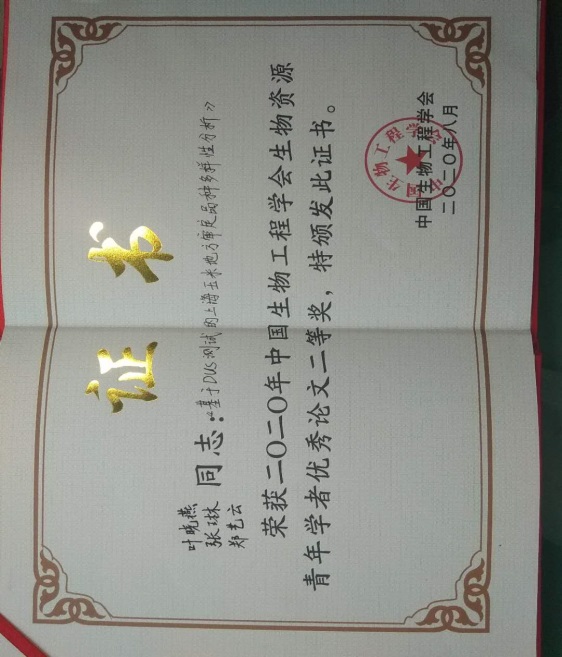 证书
叶晓燕
张琳
郑艺云
同志：“基于DUS测试的上海玉米地方审定品种多样性分析》
荣获二〇二〇年中国生物工程学会生物资源
青年学者优秀论文二等奖，特颁发此证书。
中国生物工程学会
二〇二〇年八月